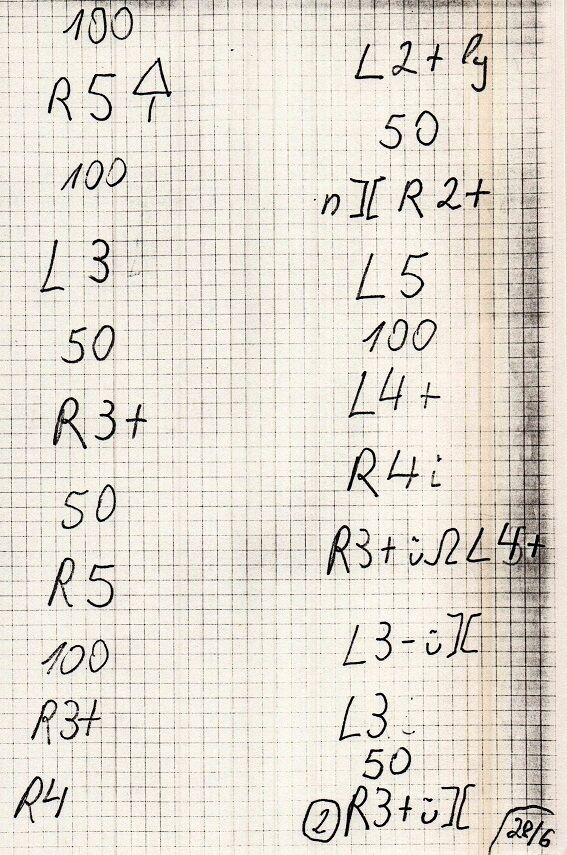 100
R5
100
L3
50
R3+
50
R5
100
R3+
R4
L2+ ly
50
n R2+
L5
100
L4+
R4i
R3+ ü Ω L4+
L3- ü
L3
50
2 R3+ ü
28/6